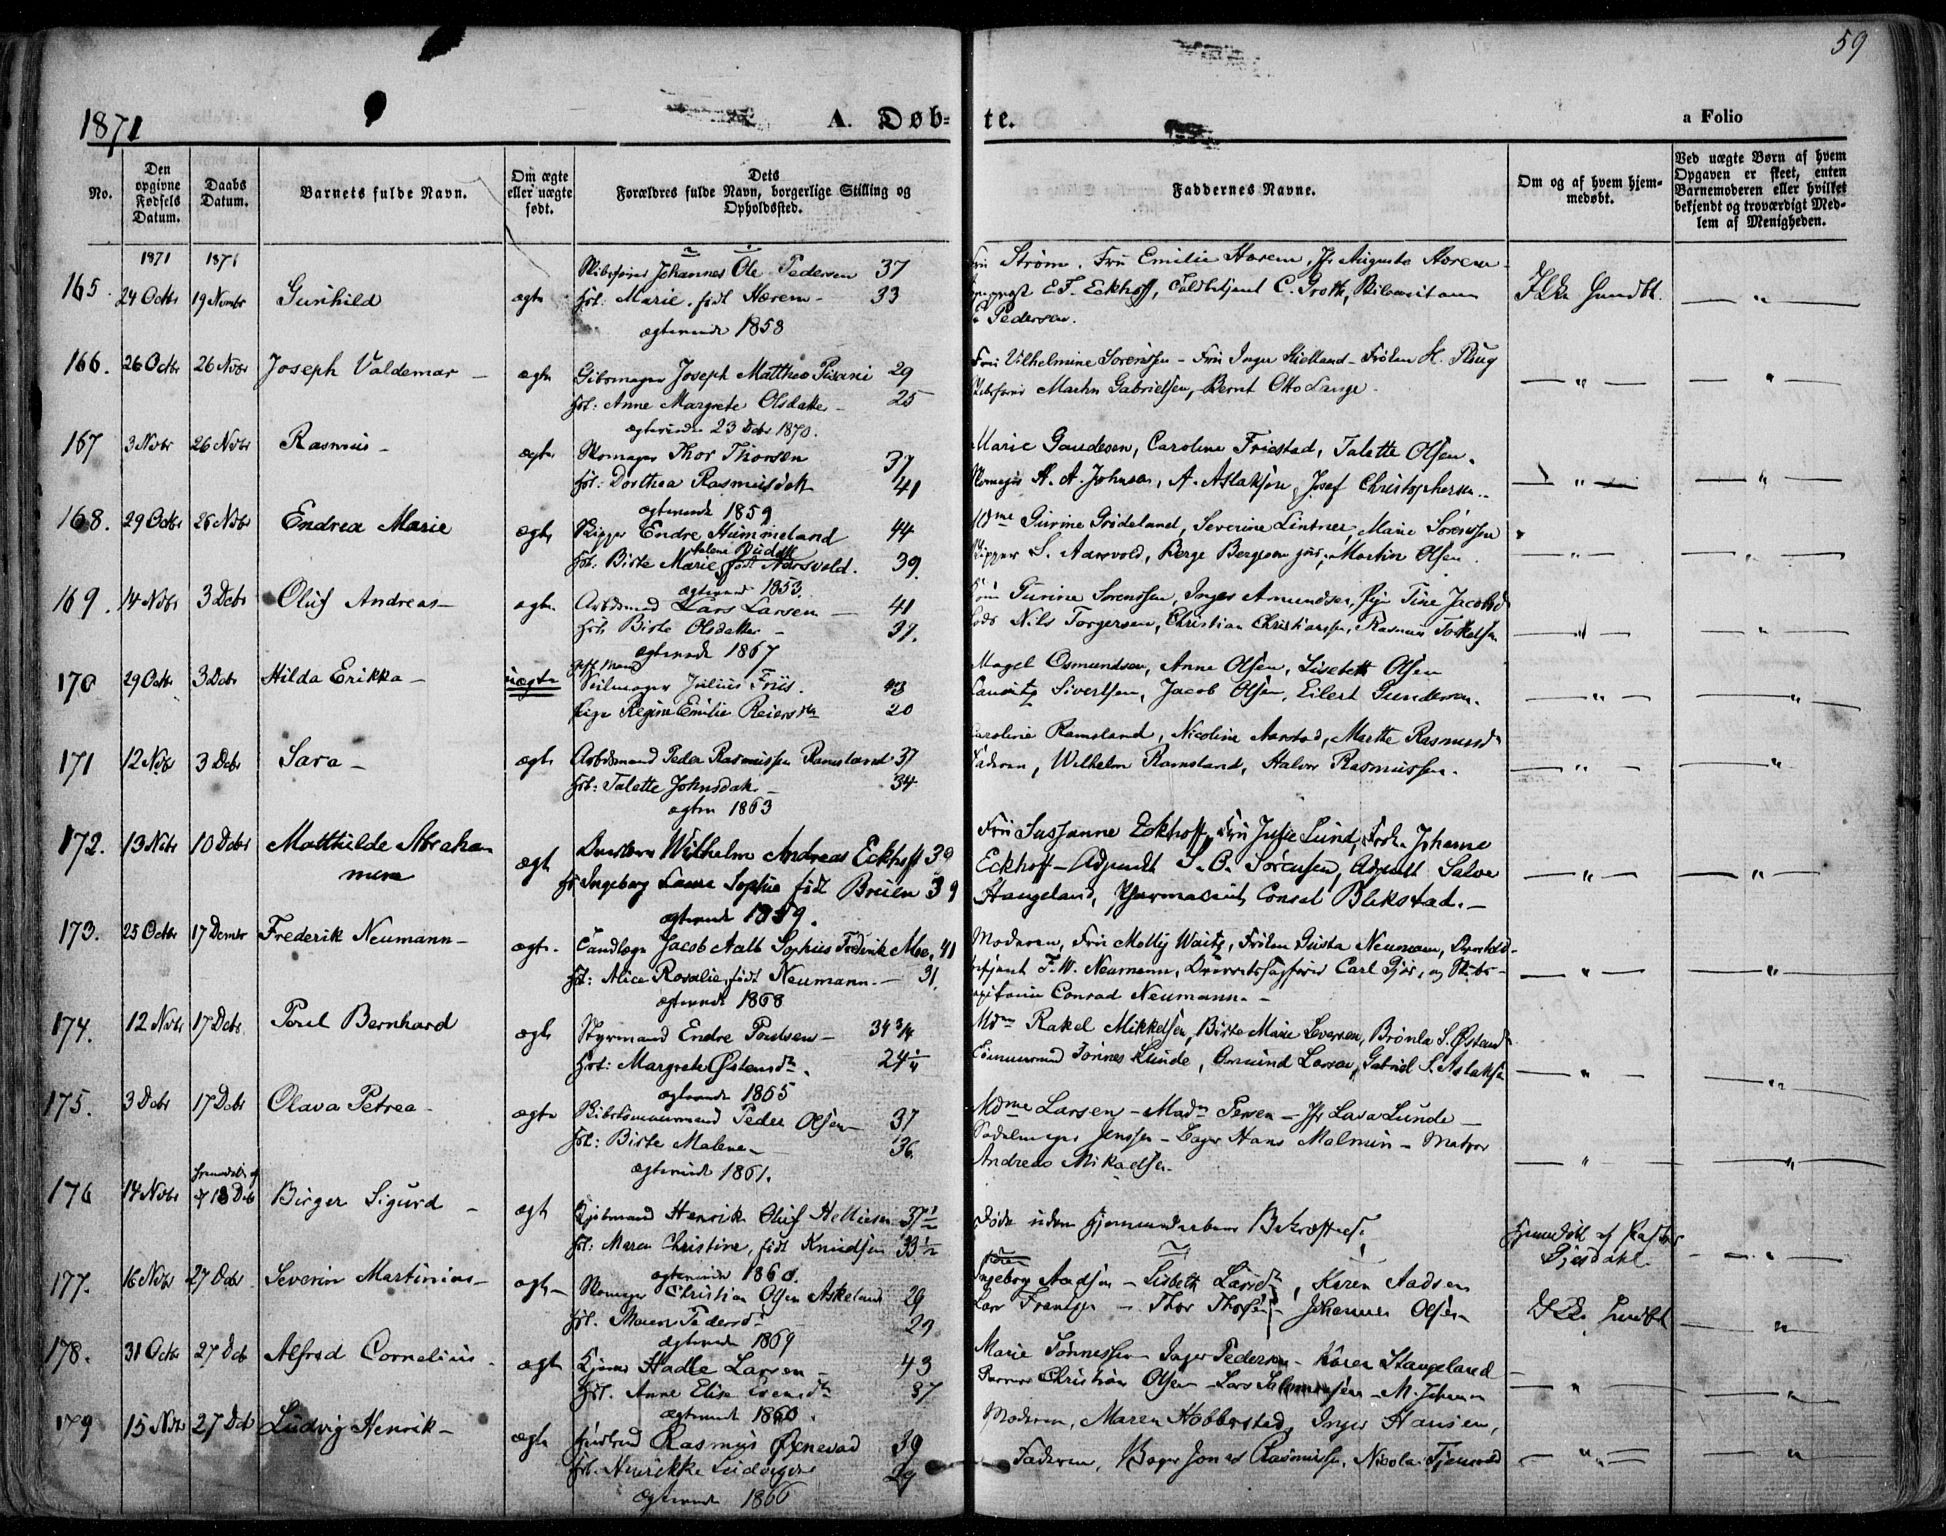 59
1871
A. Døb-
te.
a Folio
No.
Den opgivne Fødsels Datum.
Daabs Datum.
Barnets fulde Navn.
Om ægte eller uægte født.
Dets
Forældres fulde Navn, borgerlige Stilling og
Opholdssted.
Faddernes Navne.
Om og af hvem hjem-
medøbt.
Ved uægte Børn af hvem
Opgaven er skeet, enten
Barnemoderen eller hvilket
bekjendt og troværdigt Med-
lem af Menigheden.
1871 1871
165. 24 Octbr 19 Novbr Gunhild ægte Skibsfører Johannes Ole Pedersen 37
Hst: Marie, født Hærem 33
ægteviede 1858
Strøm, Fru Emilie Hærem, Jfr Augusta Hærem
E. T. Eckhoff, Toldbetjent C. Groth,
Pedersen.
Ikke hmdbt.
166. 26 Octbr 26 Novbr Joseph Valdemar ægte Gibsmager Joseph Mattheo Pisani 29
Hst: Anne Margrete Olsdatter 25
ægteviede 23 Decbr 1870.
Fru Vilhelmine Sørenssen – Fru Inger Kielland – Frøken H. Ploug
Skibsfører Martin Gabrielsen, Bernt Otto Lange.
167 3 Novbr 26 Novbr Rasmus ægte Skomager Thor Thorsen 37
Hst: Dorthea Rasmusdatt 41
ægteviede 1859
Marie Gaudesen, Caroline Friestad, Talette Olsen.
A. A. Johnsen, A. Aslaksen, Josef Christophersen.
168. 29 Octbr 26 Novbr Endrea Marie ægte Skipper Endre Hummeland 44
Hst. Birte Marie født Aarsvold. 39.
ægteviede 1853.
Mdme Gurine Grødeland, Severine Lintner, Marie Sørenssen
Skipper S. Aarsvold, Berge Bergesen jun., Martin Olsen
169. 14 Novbr 3 Decbr Oluf Andreas ægte Arbdsmand Lars Larsen 41
Hst: Birte Olsdatter 37.
ægteviede 1867
Gurine Sørenssen, Inger Amundsen, Pige Tine Jacobsd
Lods Nils Torgersen, Christian Christianssen, Rasmus Torkelsen
170 29 Octbr 3 Decbr Hilda Erikka uægte Gift Mand
Seilmager Julius Friis. 43
Pige Regine Emilie Reiersdtr 20
Magel Osmundsen, Anne Olsen, Lisebett Olsen
Lauritz Sivertsen, Jacob Olsen, Eilert Gundersen.
171 12 Novbr 3 Decbr Sara ægte Arbdsmand Peder Rasmussen Ramsland 37
Hst: Talette Johnsdatt 34
ægtev 1863
Caroline Ramsland, Nicoline Aarstad, Marthe Rasmusd
Faderen, Wilhelm Ramsland, Halvor Rasmussen.
172. 13 Novbr 10 Decbr Matthilde Abraham
mine ægte Wilhelm Andreas Eckhoff 39
Hst. Ingeborg Laura Sophie født Bruun 39
ægteviede 1859.
Fru Susanne Eckhoff, Fru Julie Lund, Frk. Johanne
Eckhoff – Adjunkt S. B. Sørensen, Adjunkt Salve
Haugeland, Pharmaceut, Consul Blekstad.
173. 25 Octbr 17 Decmbr Frederik Neumann ægte Tandlæge Jacob Aall Sophus Frederik Moe, 41
Hst: Alice Rosalie, født Neumann. 31.
ægteviede 1868
Moderen, Fru Molly Waitz, Frøken Gusta Neumann, Overtold-
betjent F. W. Neumann, Overretssagfører Carl Gjør, og Skibs-
capitaine Conrad Neumann.
174. 12 Novbr 17 Decbr Poul Bernhard ægte Styrmand Endre Poulsen 34 3/4
Hst: Margrete Østensdtr. 24 1/4
ægteviede 1865
Mdm Rakel Mikkelsen, Birte Marie Seversen, Brønla S. Østensd
Tømmermand Tønnes Lunde, Omund Larsen, Gabriel S. Aslaksen
175. 3 Decbr 17 Decbr Olava Petrea ægte Skibstømmermand Peder Olsen 37
Hst: Birte Malene 36
ægteviede 1861.
Mdme Larsen – Madm Persen – Jfr Lava Lunde
Sadelmager Jenssen – Bager Hans Malmin – Matros
Andreas Mikaelsen.
176 14 Novbr 18 Decbr Birger Sigurd ægte Kjøbmand Henrik Oluf Helliesen 37 1/2
Hst: Maren Christine, født Knudsen 33 1/2
ægteviede 1860.
Døde uden Hjemmedaabens Bekræftelse.
Hjemdøbt af Pastor
Gjesdahl.
177. 16 Novbr 27 Decbr Severin Martinius ægte Skomager Christian Olsen Askeland 29
Hst. Maren Pedersd. 29
ægteviede 1869
Ingeborg Aadsen – Lisbeth Larsdtr, Karen Aadsen
Lars Frantzen – Thor Thorsen – Johannes Olsen
Ikke hmdbt
178. 31 Octbr 27 Decb Alfred Cornelius ægte Hadle Larsen 43
Hst. Anne Elise Evensdtr 37
ægteviede 1860.
Marie Tønnessen – Inger Pedersen – Karen Stangeland
Christian Olsen – Lars – M. Johnsen
179 15 Novbr 27 Decbr Ludvig Henrik ægte Rasmus Øgnevad 39
Hst. Henrikke Ludvigsen 29
Ægteviede 1866
Moderen, Maren Hobberstad, Inger Hansen,
Faderen, Bager Jonas Rasmussen, Nicolai Tjensvold